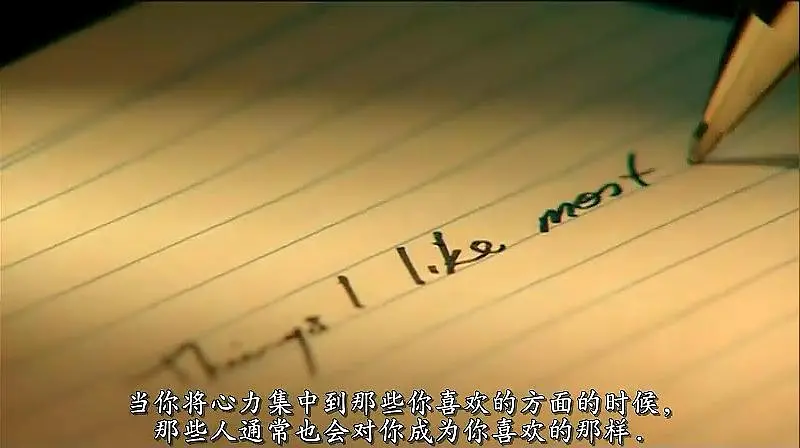 Things I like most
当你将心力集中到那些你喜欢的方面的时候，
那些人通常也会对你成为你喜欢的那样．